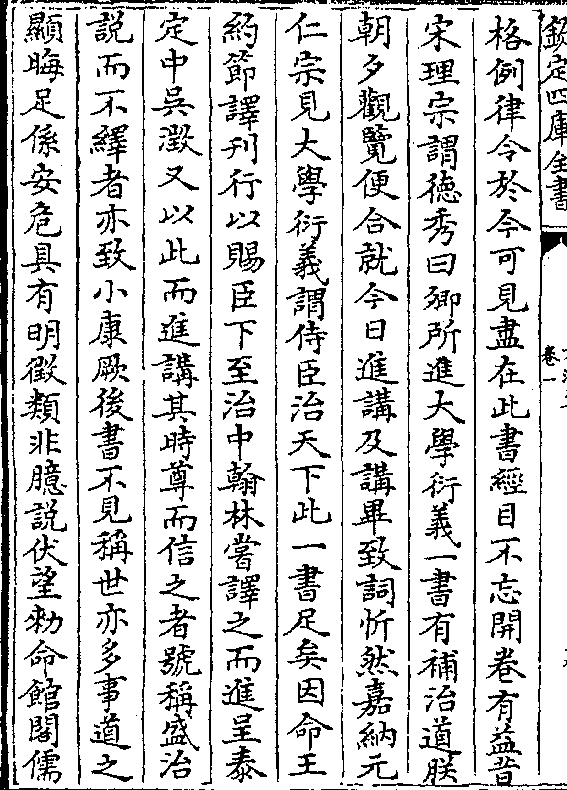 欽定四庫全書
卷一
格例律令於今可見盡在此書經目不忘開卷有益昔
宋理宗謂徳秀曰卿所進大學衍義一書有補治道朕
朝夕觀覽便合就今日進講及講畢致詞忻然嘉納元
仁宗見大學衍義謂侍臣治天下此一書足矣因命王
約節譯刋行以賜臣下至治中翰林嘗譯之而進呈泰
定中吳澂又以此而進講其時尊而信之者號稱盛治
説而不繹者亦致小康厥後書不見稱世亦多事道之
顯晦足係安危具有明徴類非臆説伏望勑命館閣儒